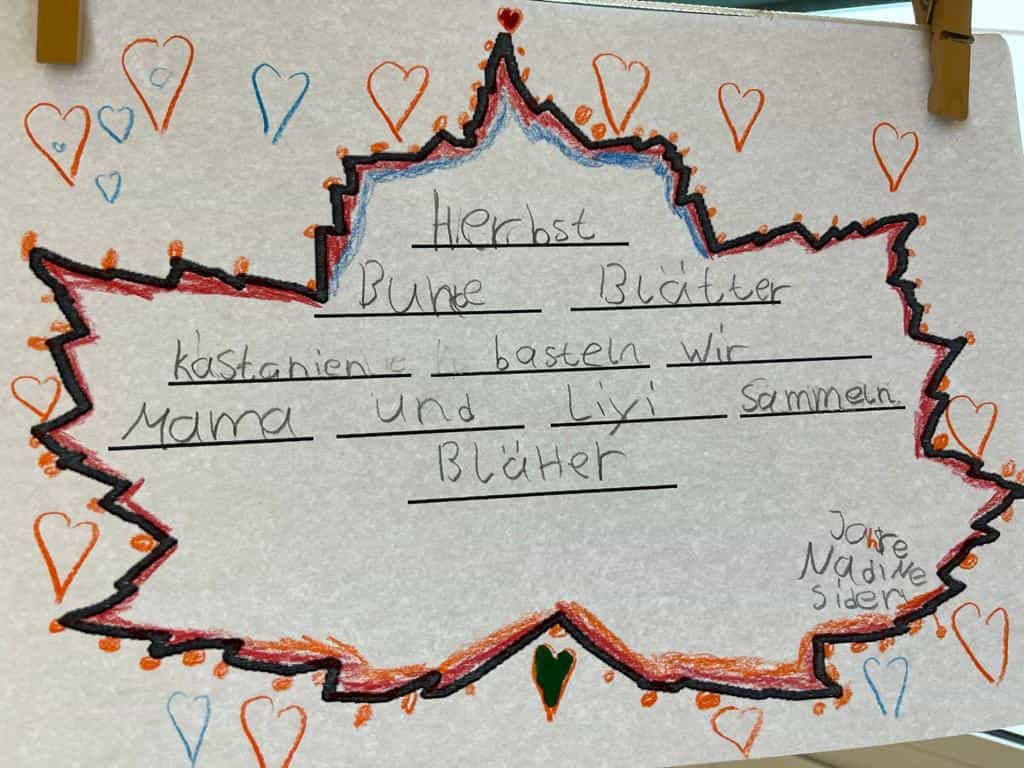 Herbst
Bunte Blätter
Kastanien basteln wir
Mama und Liyi sammeln
Blätter
Jahre
Nadine
Sideri